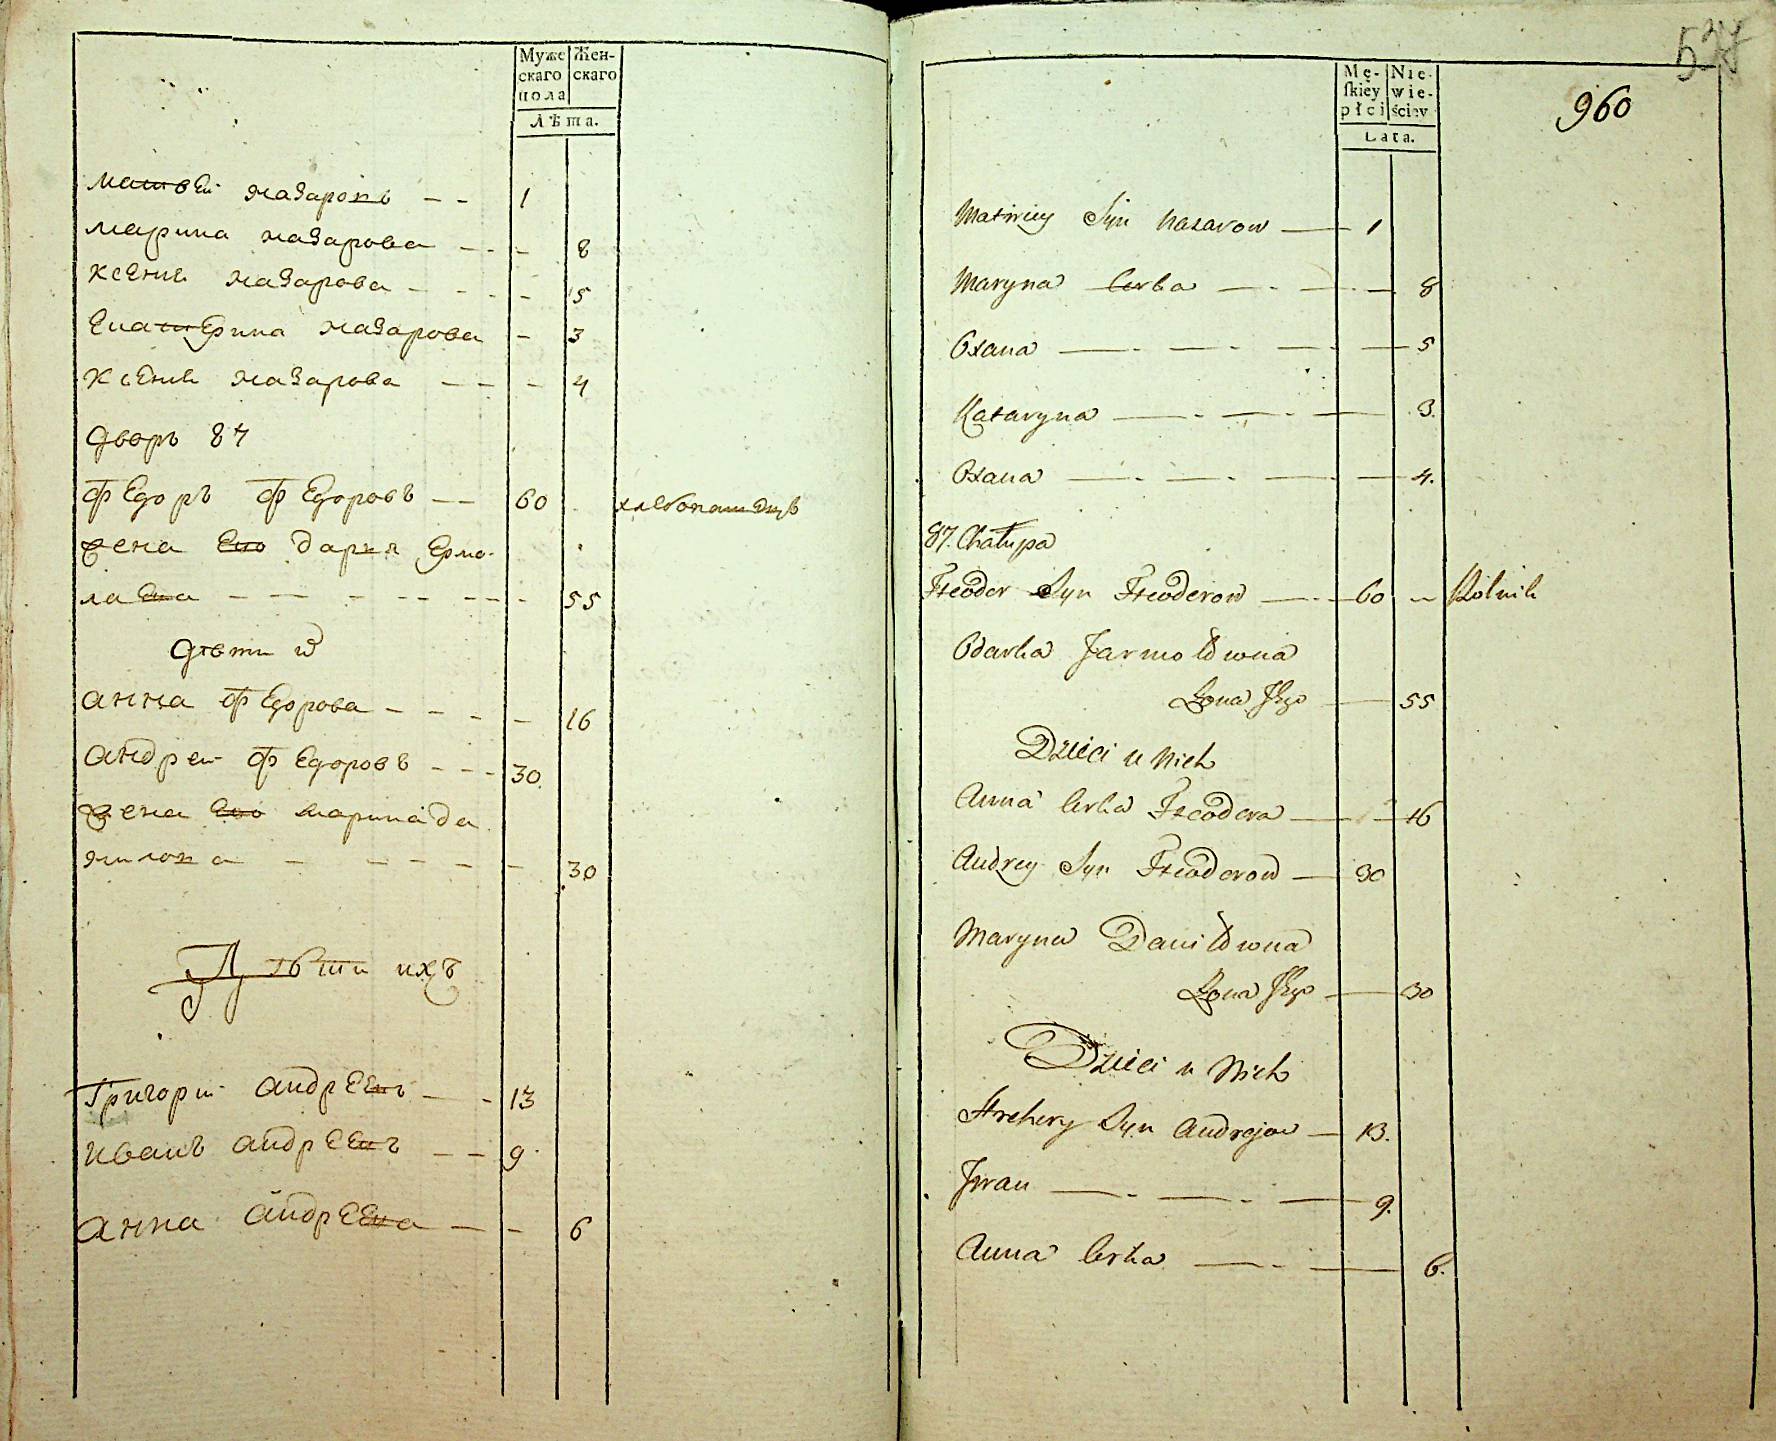 Муже Жен-
скаго скаго
пола
Лѣта.
Матвей Назаровъ - - 1
Марина Назарова - - - 8
Ксения Назарова - - - - 5
Екатерина Назарова - 3
Ксения Назарова - - - 4
Дворъ 87
Федоръ Федоровъ - - 60 хлебопашецъ
Жена Ево Дарья Ермо-
лаева - - - - - - - - 55
Дети их
Анна Федорова - - - - 16
Андрей Федоровъ - - - 30
Жена Ево Марина Да
нилова - - - - - 30
Дѣти ихъ
Григори Андреевъ - - 13
Иванъ Андреевъ - - 9
Анна Андреева - - 6
527
960
Mę- Nie-
skiey wie-
płci ściey
Lata.
Matwiey Syn Nazarow — 1
Maryna Corka — - — - — 8
Oxana — - — - — - — 5
Kataryna — - — - — 3.
Oxana — - — - — - — 4.
87. Chałupa
Fteodor Syn Fteoderow — - — 60 - Rolnik
Odarka Jarmołowna
Zona Jego — 55
Dzieci u Nich
Anna Corka Fteodora — - — 16
Andrey Syn Fteoderow — 30
Maryna Daniłowna
Zona Jego — 30
Dzieci u Nich
Hrehory Syn Andrejow — 13.
Jwan — - — - — 9.
Anna Corka — - — 6.